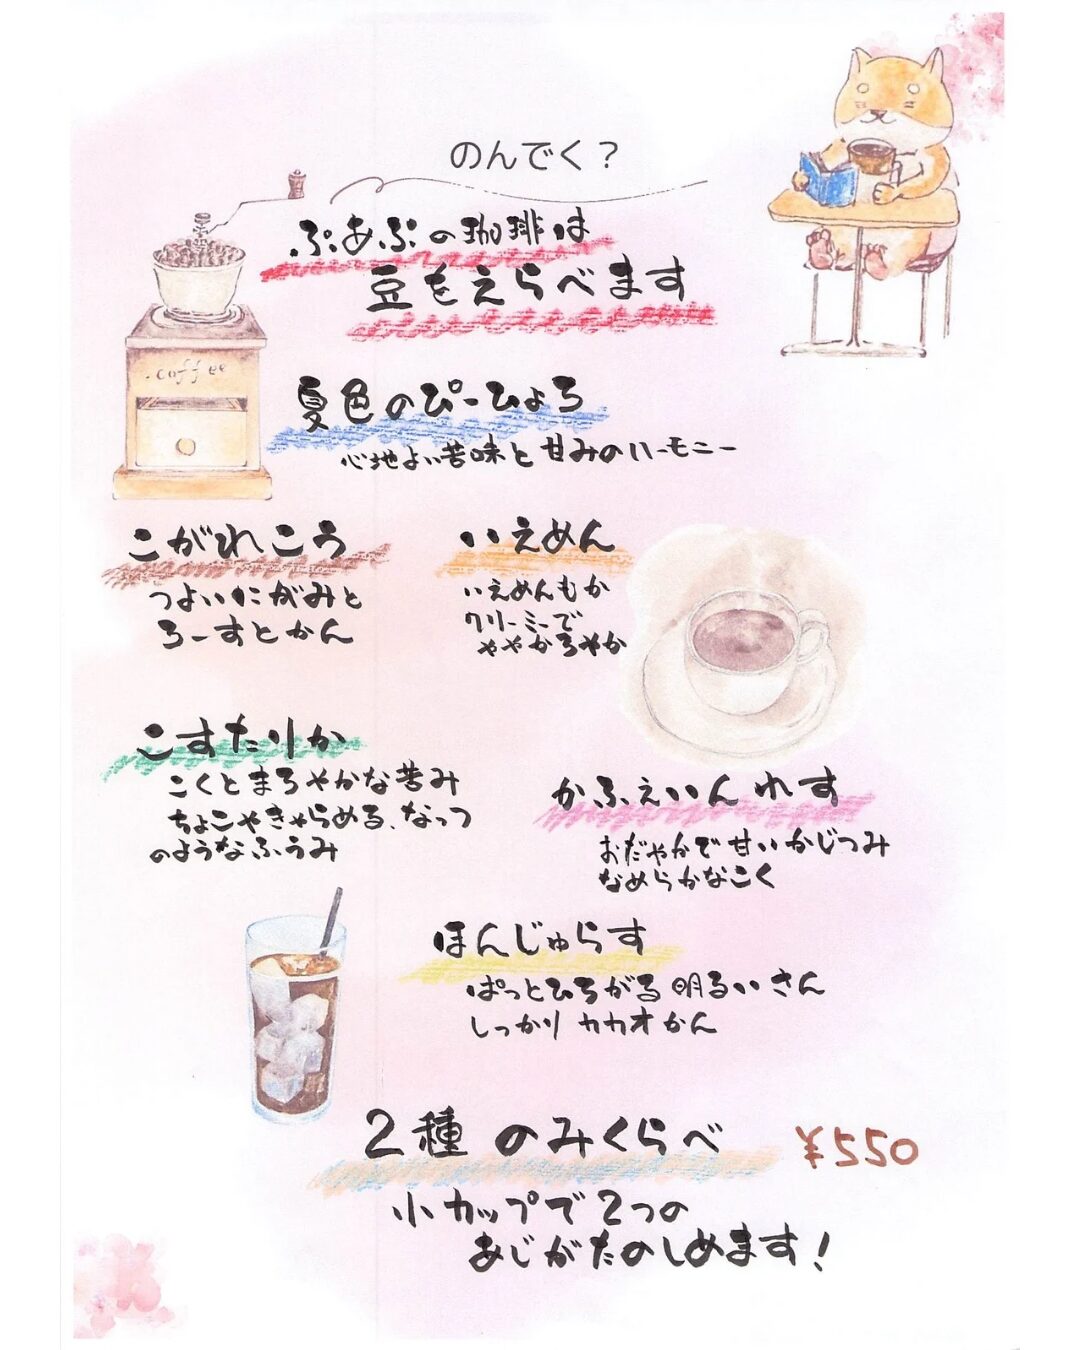 のんでく？
ぷあぷの珈琲は
豆をえらべます
coffee
夏色のぴーひょろ
心地よい苦味と甘みのハーモニー
こがれこう
つよいにがみと
ろーすとかん
いえめん
いえめんもか
クリーミーで
ややかろやか
こすたりか
こくとまろやかな苦み
ちょこやきゃらめる、なっつ
のようなふうみ
かふぇいんれす
おだやかで甘いかじつみ
なめらかなこく
ほんじゅらす
ぱっとひろがる明るいさん
しっかりカカオかん
2種のみくらべ ¥550
小カップで2つの
あじがたのしめます!